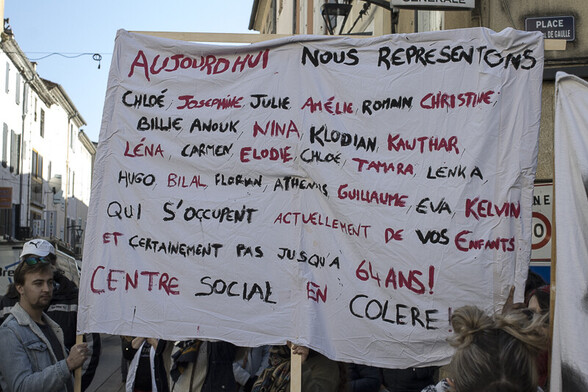 GENERALE
PLACE
DE GAULLE
AUJOURD'HUI NOUS REPRESENTONS
CHLOÉ, JOSEPHINE, JULIE, AMÉLIE, ROMAIN, CHRISTINE,
BILLIE, ANOUK, NINA, KLODIAN, KAUTHAR,
LÉNA, CARMEN, ELODIE, CHLOÉ, TAMARA, LENKA,
HUGO, BILAL, FLORIAN, ATHENAIS, GUILLAUME, EVA, KELVIN
QUI S'OCCUPENT ACTUELLEMENT DE VOS ENFANTS
ET CERTAINEMENT PAS JUSQU'A 64 ANS!
CENTRE SOCIAL EN COLERE!
NE